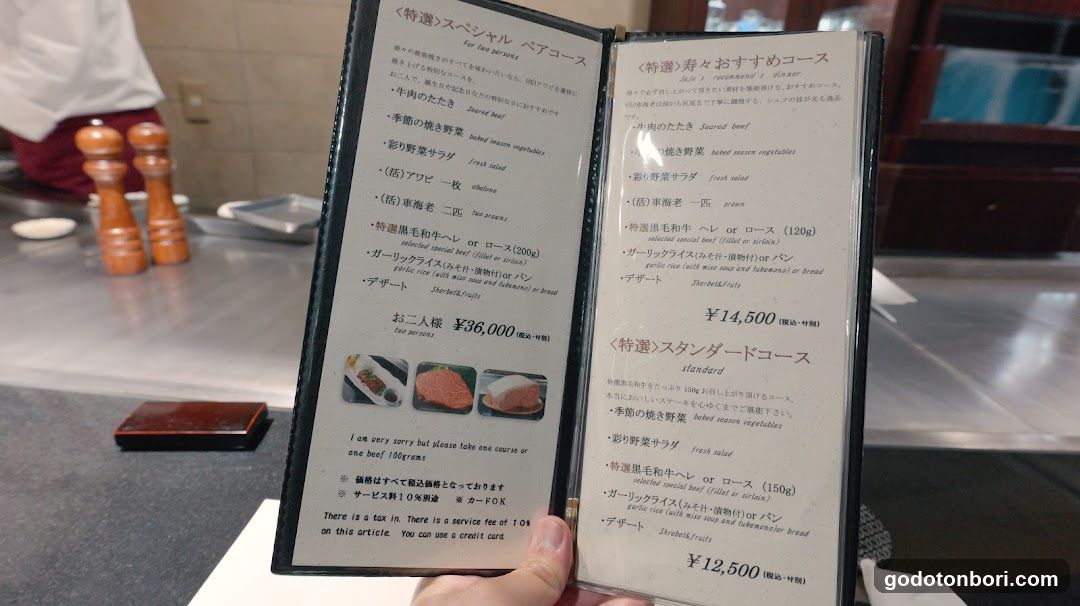 〈特選〉スペシャル ペアコース
For two persons
寿々の鉄板焼きのすべてを味わいたいなら、(活)アワビを豪快に
焼き上げる特別なコースを。
お二人で。誕生日や記念日などの特別な日におすすめです
・牛肉のたたき Seared beef
・季節の焼き野菜 baked season vegetables
・彩り野菜サラダ fresh salad
・(活)アワビ 一枚 abalone
・(活)車海老 二匹 two prawns
・特選黒毛和牛ヘレ or ロース(200g)
selected special beef (fillet or sirloin)
・ガーリックライス(みそ汁・漬物付)or パン
garlic rice (with miso soup and tukemono) or bread
・デザート Sherbel&fruits
お二人様 ¥36,000(税込・サ別)
two persons
I am very sorry but please take one course or
one beef 100grams
※ 価格はすべて税込価格となっております
※ サービス料10%別途 ※ カードOK
There is a tax in. There is a service fee of 10%
on this article. You can use a credit card.
〈特選〉寿々おすすめコース
Juju's recommend's dinner
寿々で必ず召し上がって頂きたい素材を堪能頂ける、おすすめコース。
(活)車海老は頭から尻尾まで丁寧に調理する、シェフの技が光る逸品
です。
・牛肉のたたき Seared beef
の焼き野菜 baked season vegetables
・彩り野菜サラダ fresh salad
・(活)車海老 一匹 prawn
・特選黒毛和牛 ヘレ or ロース (120g)
selected special beef (fillet or sirloin)
・ガーリックライス(みそ汁・漬物付)or パン
garlic rice (with miso soup and tukemono) or bread
・デザート Sherbel&fruits
¥14,500(税込・サ別)
〈特選〉スタンダードコース
standard
特撰黒毛和牛をたっぷり 150g お召し上がり頂けるコース。
本当においしいステーキを心ゆくまでご堪能下さい。
・季節の焼き野菜 baked season vegetables
・彩り野菜サラダ fresh salad
・特選黒毛和牛ヘレ or ロース (150g)
selected special beef (fillet or sirloin)
・ガーリックライス(みそ汁・漬物付)or パン
garlic rice (with miso soup and tukemono)or bread
・デザート Shrebel&fruits
¥12,500(税込・サ別)
godotonbori.com